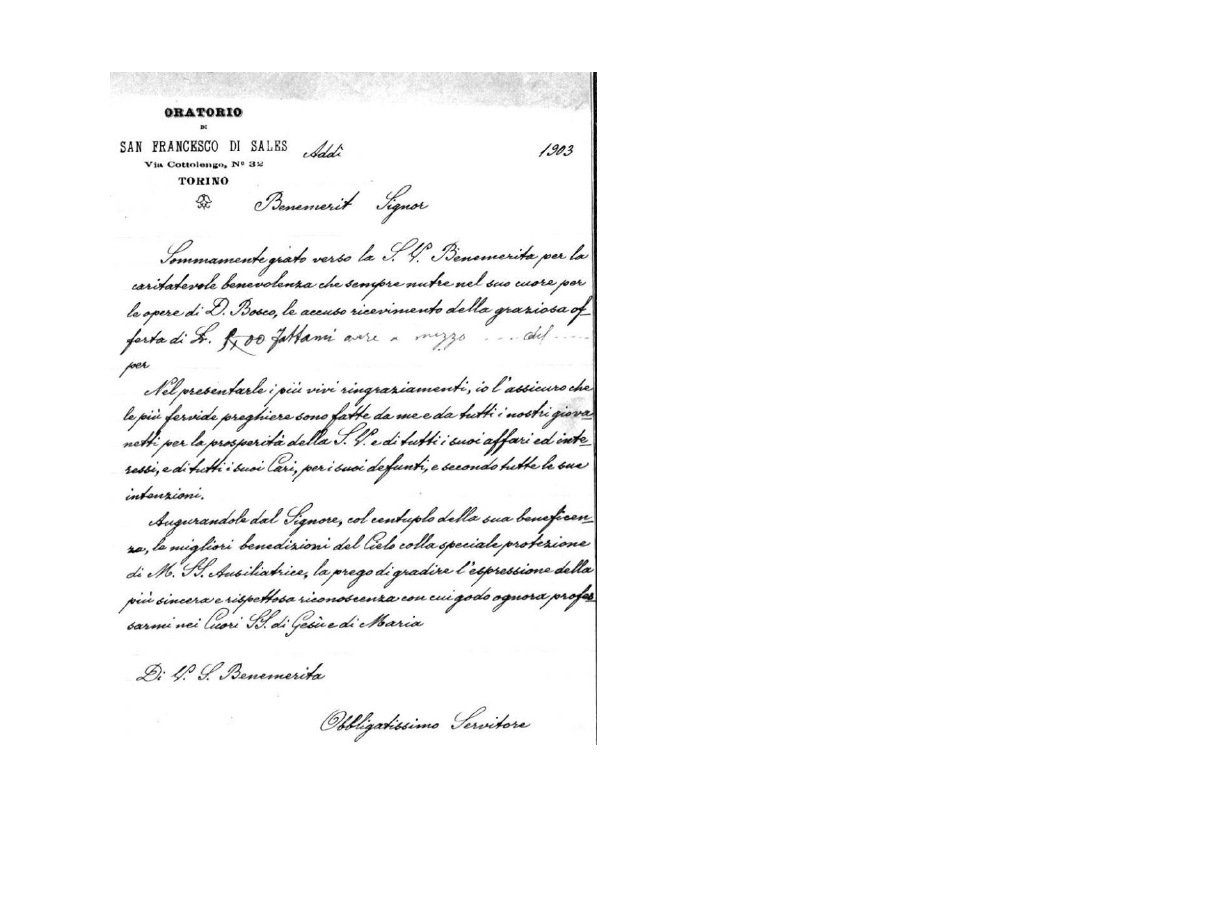 ORATORIO
DI
SAN FRANCESCO DI SALES
Via Cottolengo, Nº 32
TORINO
Addì 1903
Benemerit Signor
Sommamente grato verso la S. V. Benemerita per la
caritatevole benevolenza che sempre nutre nel suo cuore per
le opere di D. Bosco, le accuso ricevimento della graziosa of_
ferta di L. fattami avere a mezzo .... del ....
per
Nel presentarle i più vivi ringraziamenti, io l'assicuro che
le più fervide preghiere sono fatte da me e da tutti i nostri giova_
netti per la prosperità della S. V. e di tutti i suoi affari ed inte_
ressi, e di tutti i suoi Cari, per i suoi defunti, e secondo tutte le sue
intenzioni.
Augurandole dal Signore, col centuplo della sua beneficen_
za, le migliori benedizioni del Cielo colla speciale protezione
di M. SS. Ausiliatrice, la prego di gradire l'espressione della
più sincera e rispettosa riconoscenza con cui godo ognora profes_
sarmi nei Cuori SS. di Gesù e di Maria
Di V. S. Benemerita
Obbligatissimo Servitore